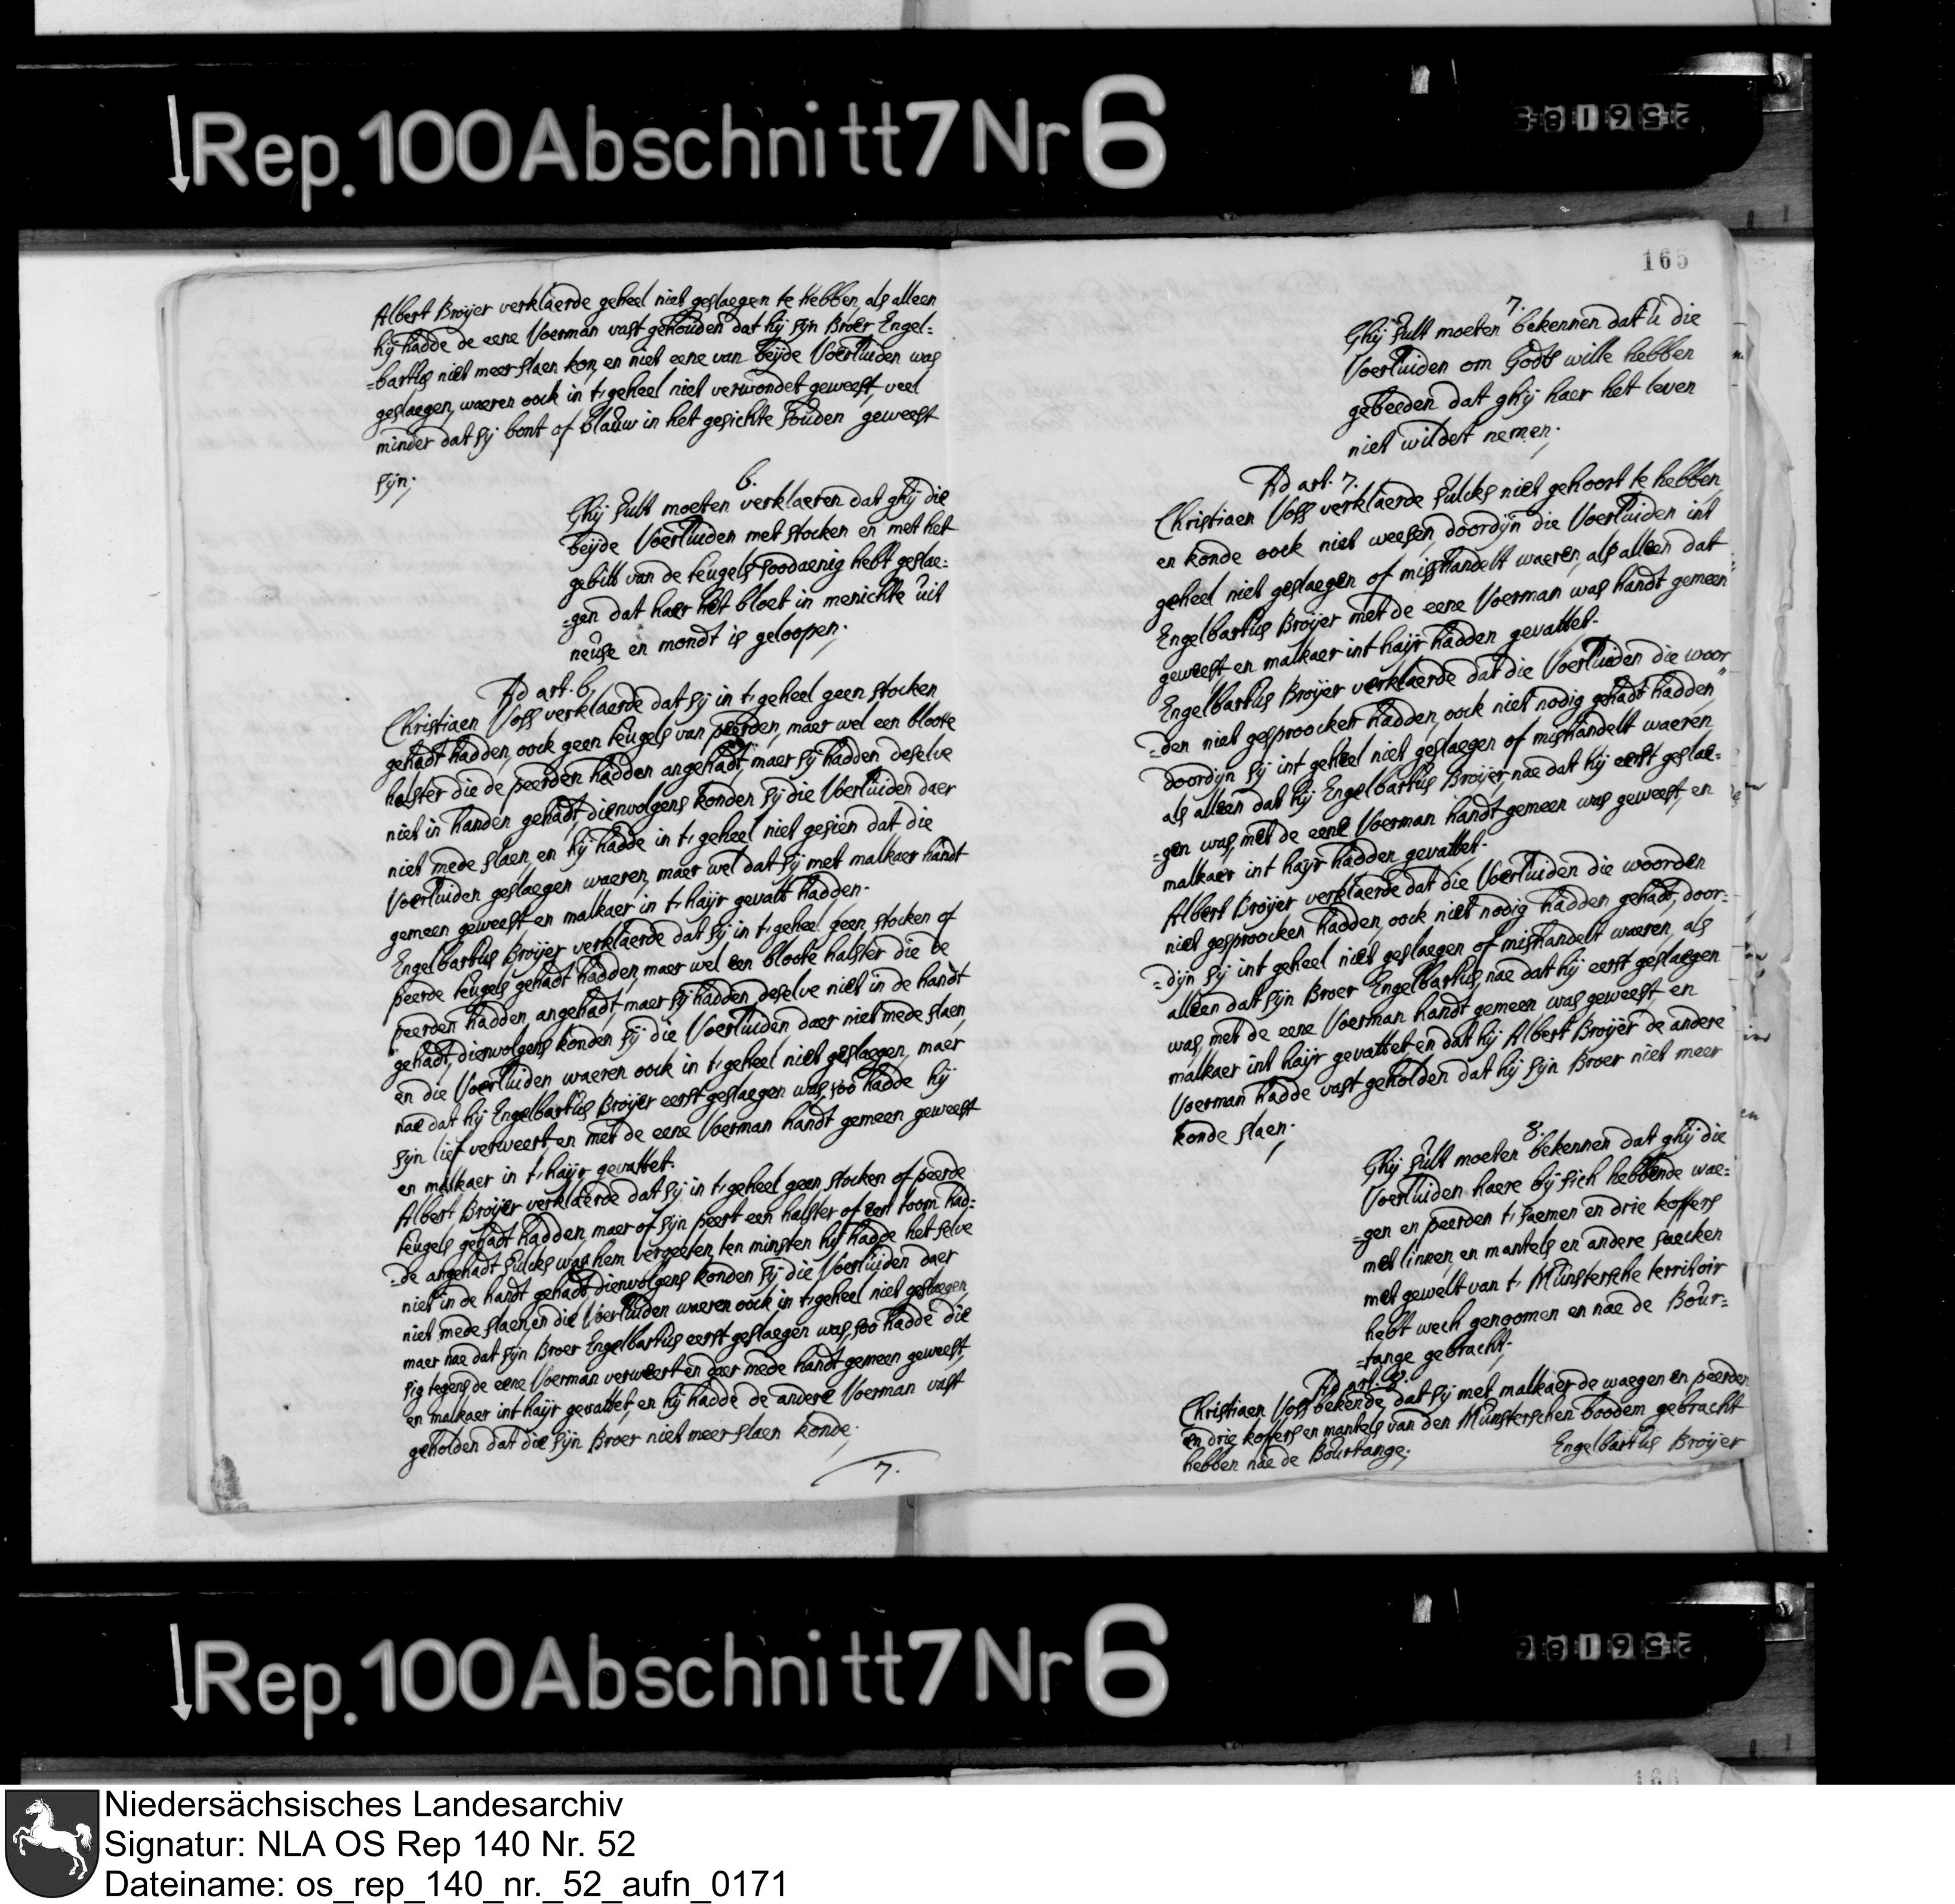 Rep. 100 Abschnitt 7 Nr 6
256185
Albert Broijer verklaerde geheel niet geslaegen te hebben, als alleen
hij hadde de eene Voerman vast gehouden dat hij sijn Broer Engel=
=bartus niet meer slaen kon, en niet eene van beijde Voerluiden was
geslaegen, waeren oock in t' geheel niet verwondet geweest, veel
minder dat sij bont of blauw in het gesichte souden geweest
sijn;
6.
Ghij sult moeten verklaeren dat ghij die
beijde Voerluiden met stocken en met het
gebitt van de teugels soodaenig hebt geslae=
=gen dat haer het bloet in menichte uit
neuse en mondt is geloopen;
Ad art. 6.
Christiaen Voss verklaerde dat sij in t' geheel geen stocken
gehadt hadden, oock geen teugels van peerden, maer wel een bloote
halster die de peerden hadden angehadt, maer sij hadden deselve
niet in handen gehadt, dienvolgens konden sij die Voerluiden daer
niet mede slaen, en hij hadde in t' geheel niet gesien dat die
Voerluiden geslaegen waeren, maer wel dat sij met malkaer handt
gemeen geweest, en malkaer in t' haijr gevatt hadden.
Engelbartus Broijer verklaerde dat sij in t' geheel geen stocken of
peerde teugels gehadt hadden, maer wel een bloote halster die de
peerden hadden angehadt, maer sij hadden deselve niet in de handt
gehadt, dienvolgens konden sij die Voerluiden daer niet mede slaen,
en die Voerluiden waeren oock in t' geheel niet geslaegen, maer
nae dat hij Engelbartus Broijer eerst geslaegen was, soo hadde hij
sijn lief verweert, en met de eene Voerman handt gemeen geweest
en malkaer in t' haijr gevattet.
Albert Broijer verklaerde dat sij in t' geheel geen stocken of peerde
teugels gehadt hadden, maer of sijn peert een halster of een toom had=
=de angehadt sulcks was hem vergeeten, ten minsten hij hadde het selve
niet in de handt gehadt, dienvolgens konden sij die Voerluiden daer
niet mede slaen, en die Voerluiden waeren oock in t' geheel niet geslaegen,
maer nae dat sijn Broer Engelbartus eerst geslaegen was, soo hadde die
sig tegens de eene Voerman verweert en daer mede handt gemeen geweest,
en malkaer int haijr gevattet, en hij hadde de andere Voerman vast
geholden dat die sijn Broer niet meer slaen konde;
7.
165
7.
Ghij sult moeten bekennen dat u die
Voerluiden om Godts wille hebben
gebeeden dat ghij haer het leven
niet wildet nemen;
Ad art. 7.
Christiaen Voss verklaerde sulcks niet gehoort te hebben,
en konde oock niet weesen, doordijn die Voerluiden int
geheel niet geslaegen of misshandelt waeren, als alleen dat
Engelbartus Broijer met de eene Voerman was handt gemeen
geweest en malkaer int haijr hadden gevattet.
Engelbartus Broijer verklaerde dat die Voerluiden die woor
=den niet gesproocken hadden, oock niet nodig gehadt hadden,
doordijn sij int geheel niet geslaegen of mishandelt waeren,
als alleen dat hij Engelbartus Broijer, nae dat hij eerst geslae=
=gen was, met de eene Voerman handt gemeen was geweest, en
malkaer int haijr hadden gevattet.
Albert Broijer verklaerde dat die Voerluiden die woorden
niet gesproocken hadden, oock niet nodig hadden gehadt, door=
=dijn sij int geheel niet geslaegen of mishandelt waeren, als
alleen dat sijn Broer Engelbartus, nae dat hij eerst geslaegen
was, met de eene Voerman handt gemeen was geweest, en
malkaer int haijr gevattet, en dat hij Albert Broijer de andere
Voerman hadde vast geholden dat hij sijn Broer niet meer
konde slaen;
8.
Ghij sult moeten bekennen dat ghij die
Voerluiden haere bij sich hebbende wae=
=gen en peerden t' saemen en drie koffers
met linnen, en mantels, en andere saecken
met gewelt van t' Münstersche territoir
hebt wech genoomen en nae de Bour=
=tange gebracht;
Ad art. 8.
Christiaen Voss bekende, dat sij met malkaer de waegen en peerden
en drie koffers en mantels van den Münsterschen boodem gebracht
hebben nae de Bourtange;
Engelbartus Broijer
Rep. 100 Abschnitt 7 Nr 6
256186
166
Niedersächsisches Landesarchiv
Signatur: NLA OS Rep 140 Nr. 52
Dateiname: os_rep_140_nr._52_aufn_0171